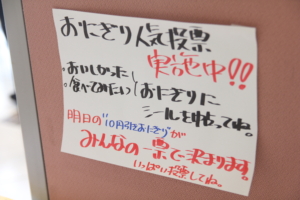 おにぎり人気投票
実施中!!
・おいしかった
・食べてみたい
おにぎりに
シールをはってね。
明日の"10円引きおにぎり"が
みんなの一票で決まります。
いっぱい投票してね。